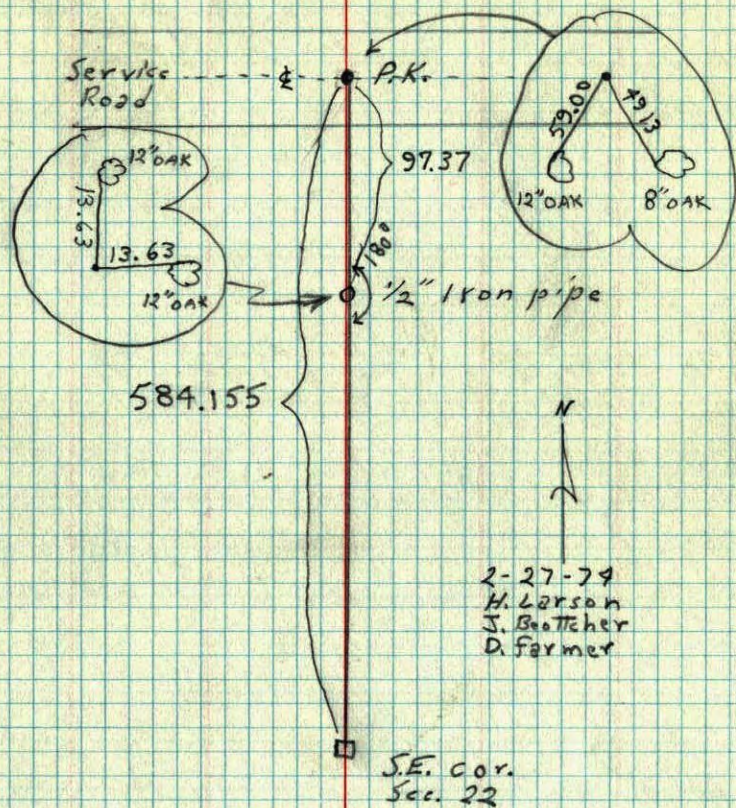 Service
Road
℄
P.K.
59.00
49.13
12" OAK
8" OAK
97.37
12" OAK
13.63
13.63
12" OAK
180°
1/2" Iron pipe
584.155
N
2-27-74
H. Larson
J. Boettcher
D. Farmer
S.E. cor.
Sec. 22